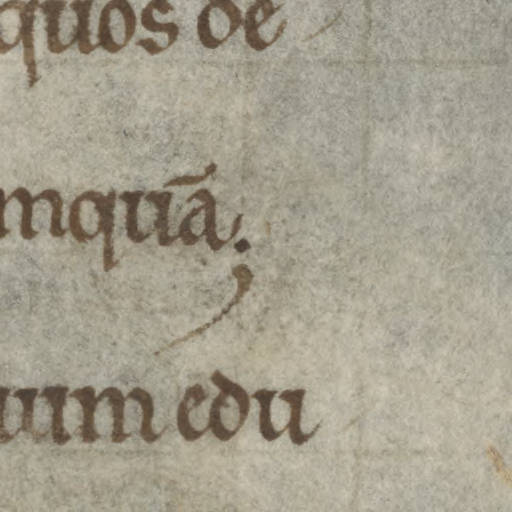 quos de
mquā.
uum edu